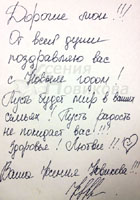 Дорогие мои!!!
От всей души
поздравляю вас
с Новым годом!
Пусть будет мир в ваших
семьях! Пусть радость
не покидает вас!!!
Здоровья! Любви!!!
Ваша Ксения Новикова!!!